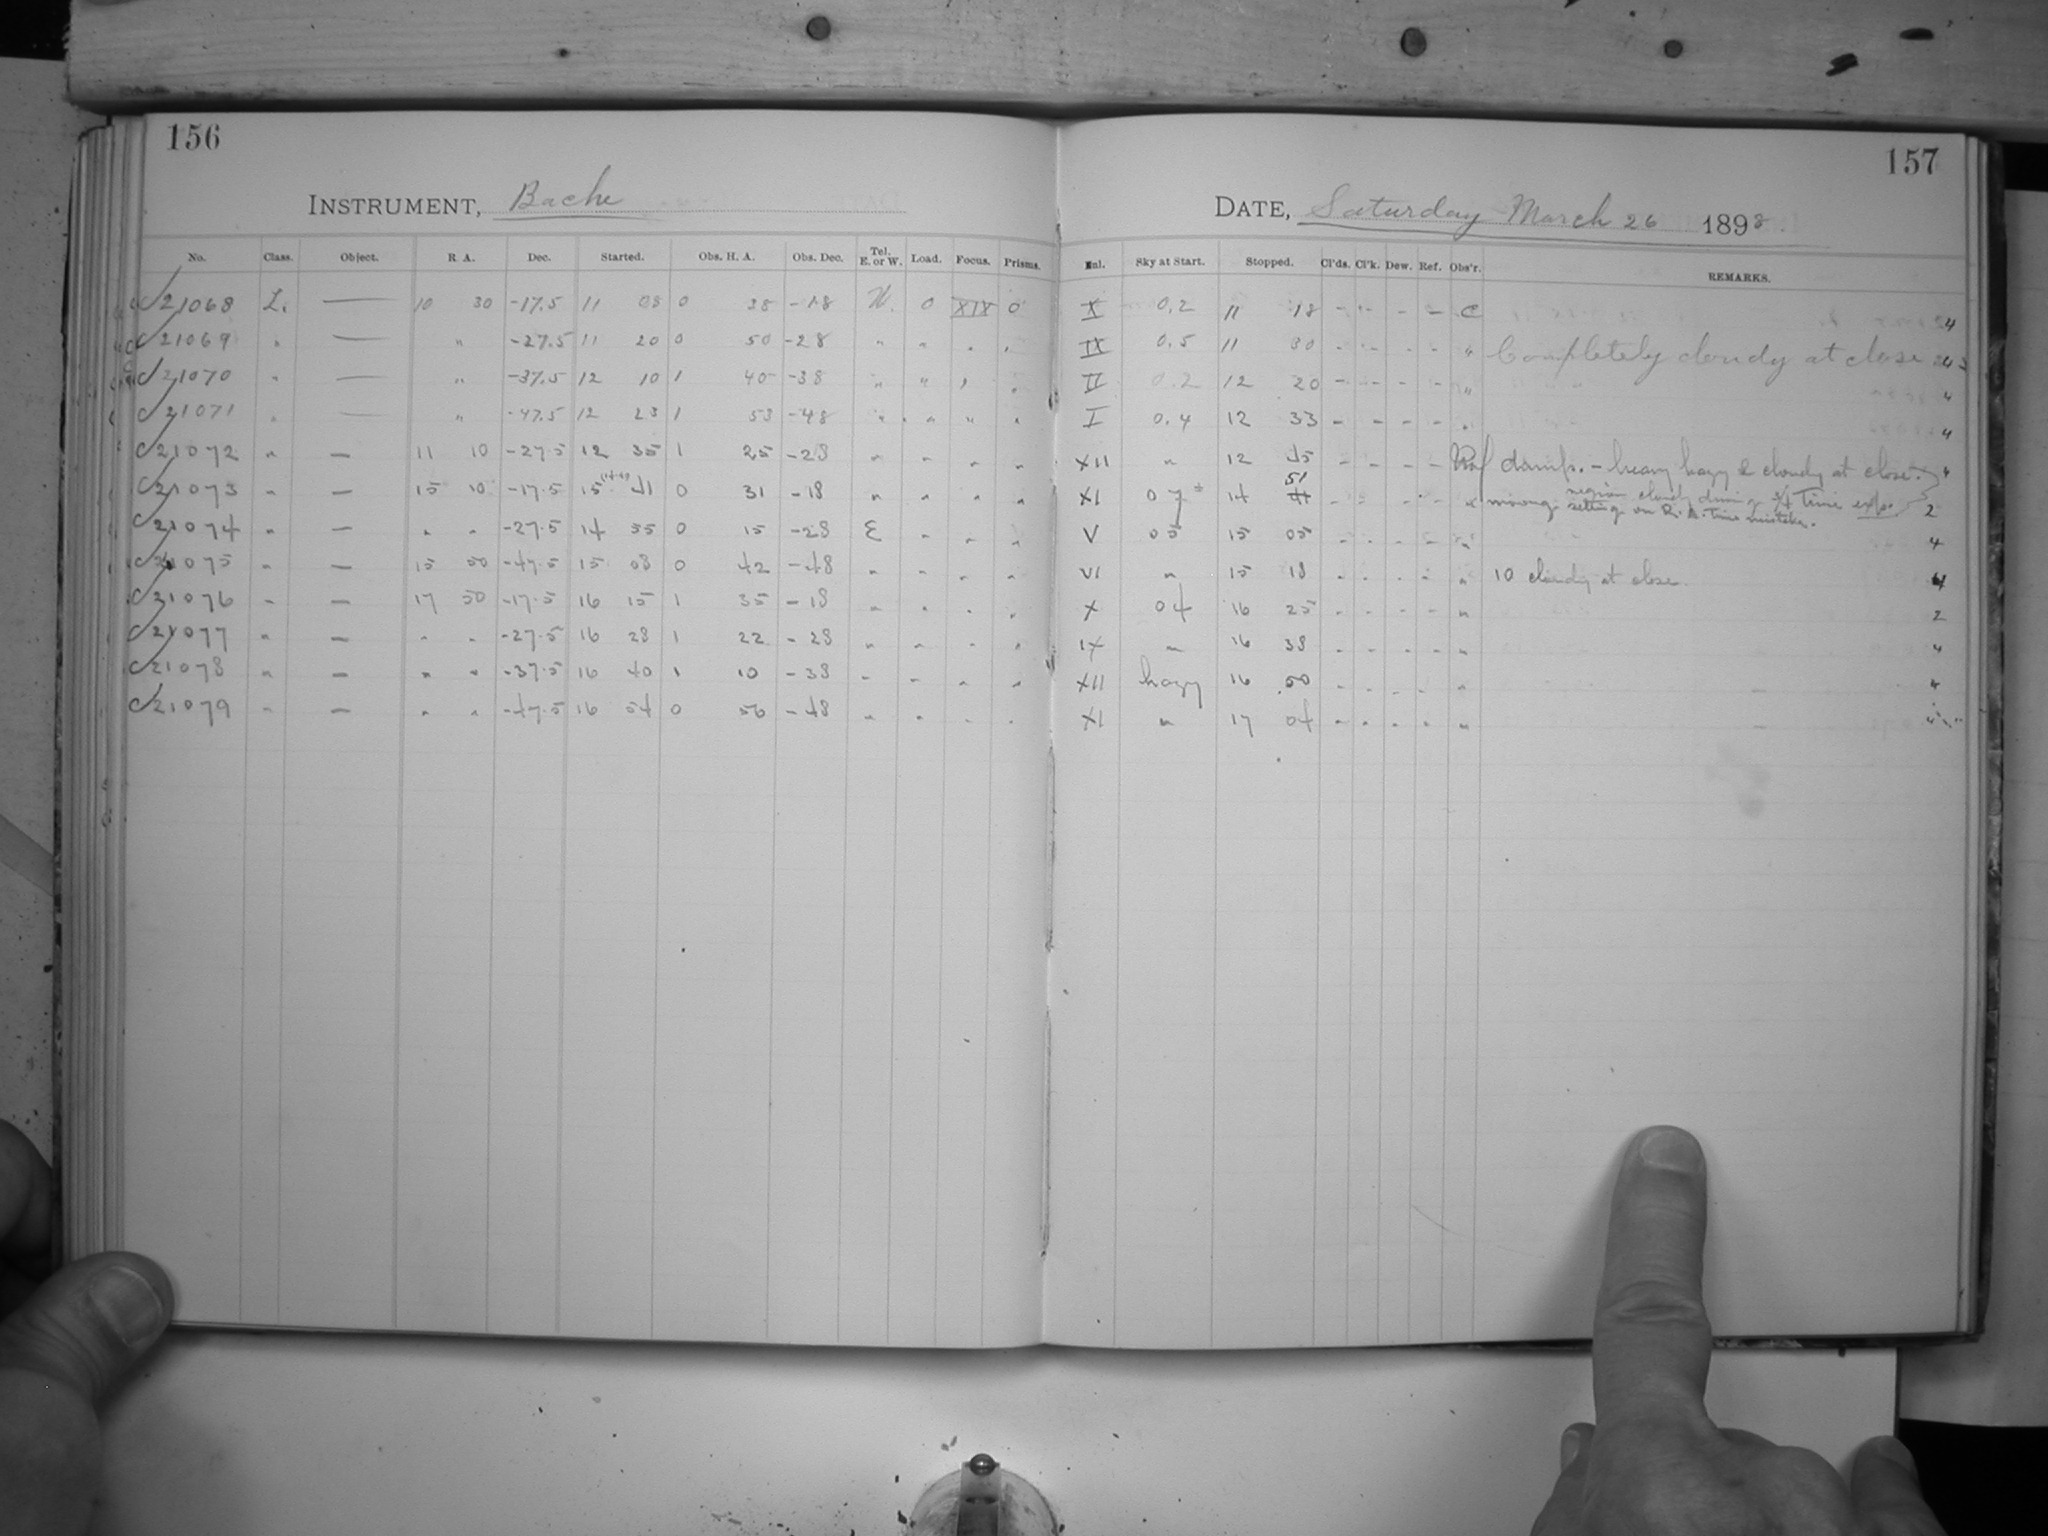 156
157
INSTRUMENT, Bache
DATE, Saturday March 26 1898
No. Class. Object. R. A. Dec. Started. Obs. H. A. Obs. Dec. Tel. E. or W. Load. Focus. Prisms. Enl. Sky at Start. Stopped. Cl'ds. Cl'k. Dew. Ref. Obs'r. REMARKS.
21068 L. — 10 30 -17.5 11 08 0 38 -18 W. 0 XIX 0 X 0.2 11 18 - - - - C 4
21069 " — " -27.5 11 20 0 50 -28 " " " " IX 0.5 11 30 - - - - " Completely cloudy at close
21070 " — " -37.5 12 10 1 40 -38 " " " " II 0.2 12 20 - - - - " "
21071 " — " -47.5 12 23 1 53 -48 " " " " I 0.4 12 33 - - - - " 4
21072 " — 11 10 -27.5 12 35 1 25 -28 " " " " XII " 12 45 - - - - damp. - heavy hazy & cloudy at close. 4
21073 " — 15 10 -17.5 15 41 0 31 -18 " " " " XI 07 14 51 - - - - " region cloudy during 3/4 time exp. 2
wrong setting on R. A. Time mistake.
21074 " — " " -27.5 14 55 0 15 -28 E " " " V 05 15 05 - - - - " 4
21075 " — 15 50 -47.5 15 08 0 42 -48 " " " " VI " 15 18 - - - - " 10 cloudy at close. 4
21076 " — 17 50 -17.5 16 15 1 35 -18 " " " " X 04 16 25 - - - - " 2
21077 " — " " -27.5 16 28 1 22 -28 " " " " IX " 16 38 - - - - " "
21078 " — " " -37.5 16 40 1 10 -38 " " " " XII hazy 16 50 - - - - " "
21079 " — " " -47.5 16 54 0 56 -48 " " " " XI " 17 04 - - - - " "